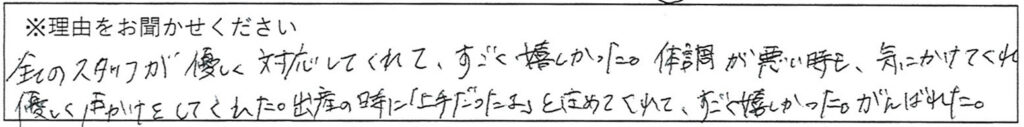 ※理由をお聞かせください
全てのスタッフが優しく対応してくれて、すごく嬉しかった。体調が悪い時も、気にかけてくれ
優しく声かけをしてくれた。出産の時に「上手だったよ」と褒めてくれて、すごく嬉しかった。がんばれた。